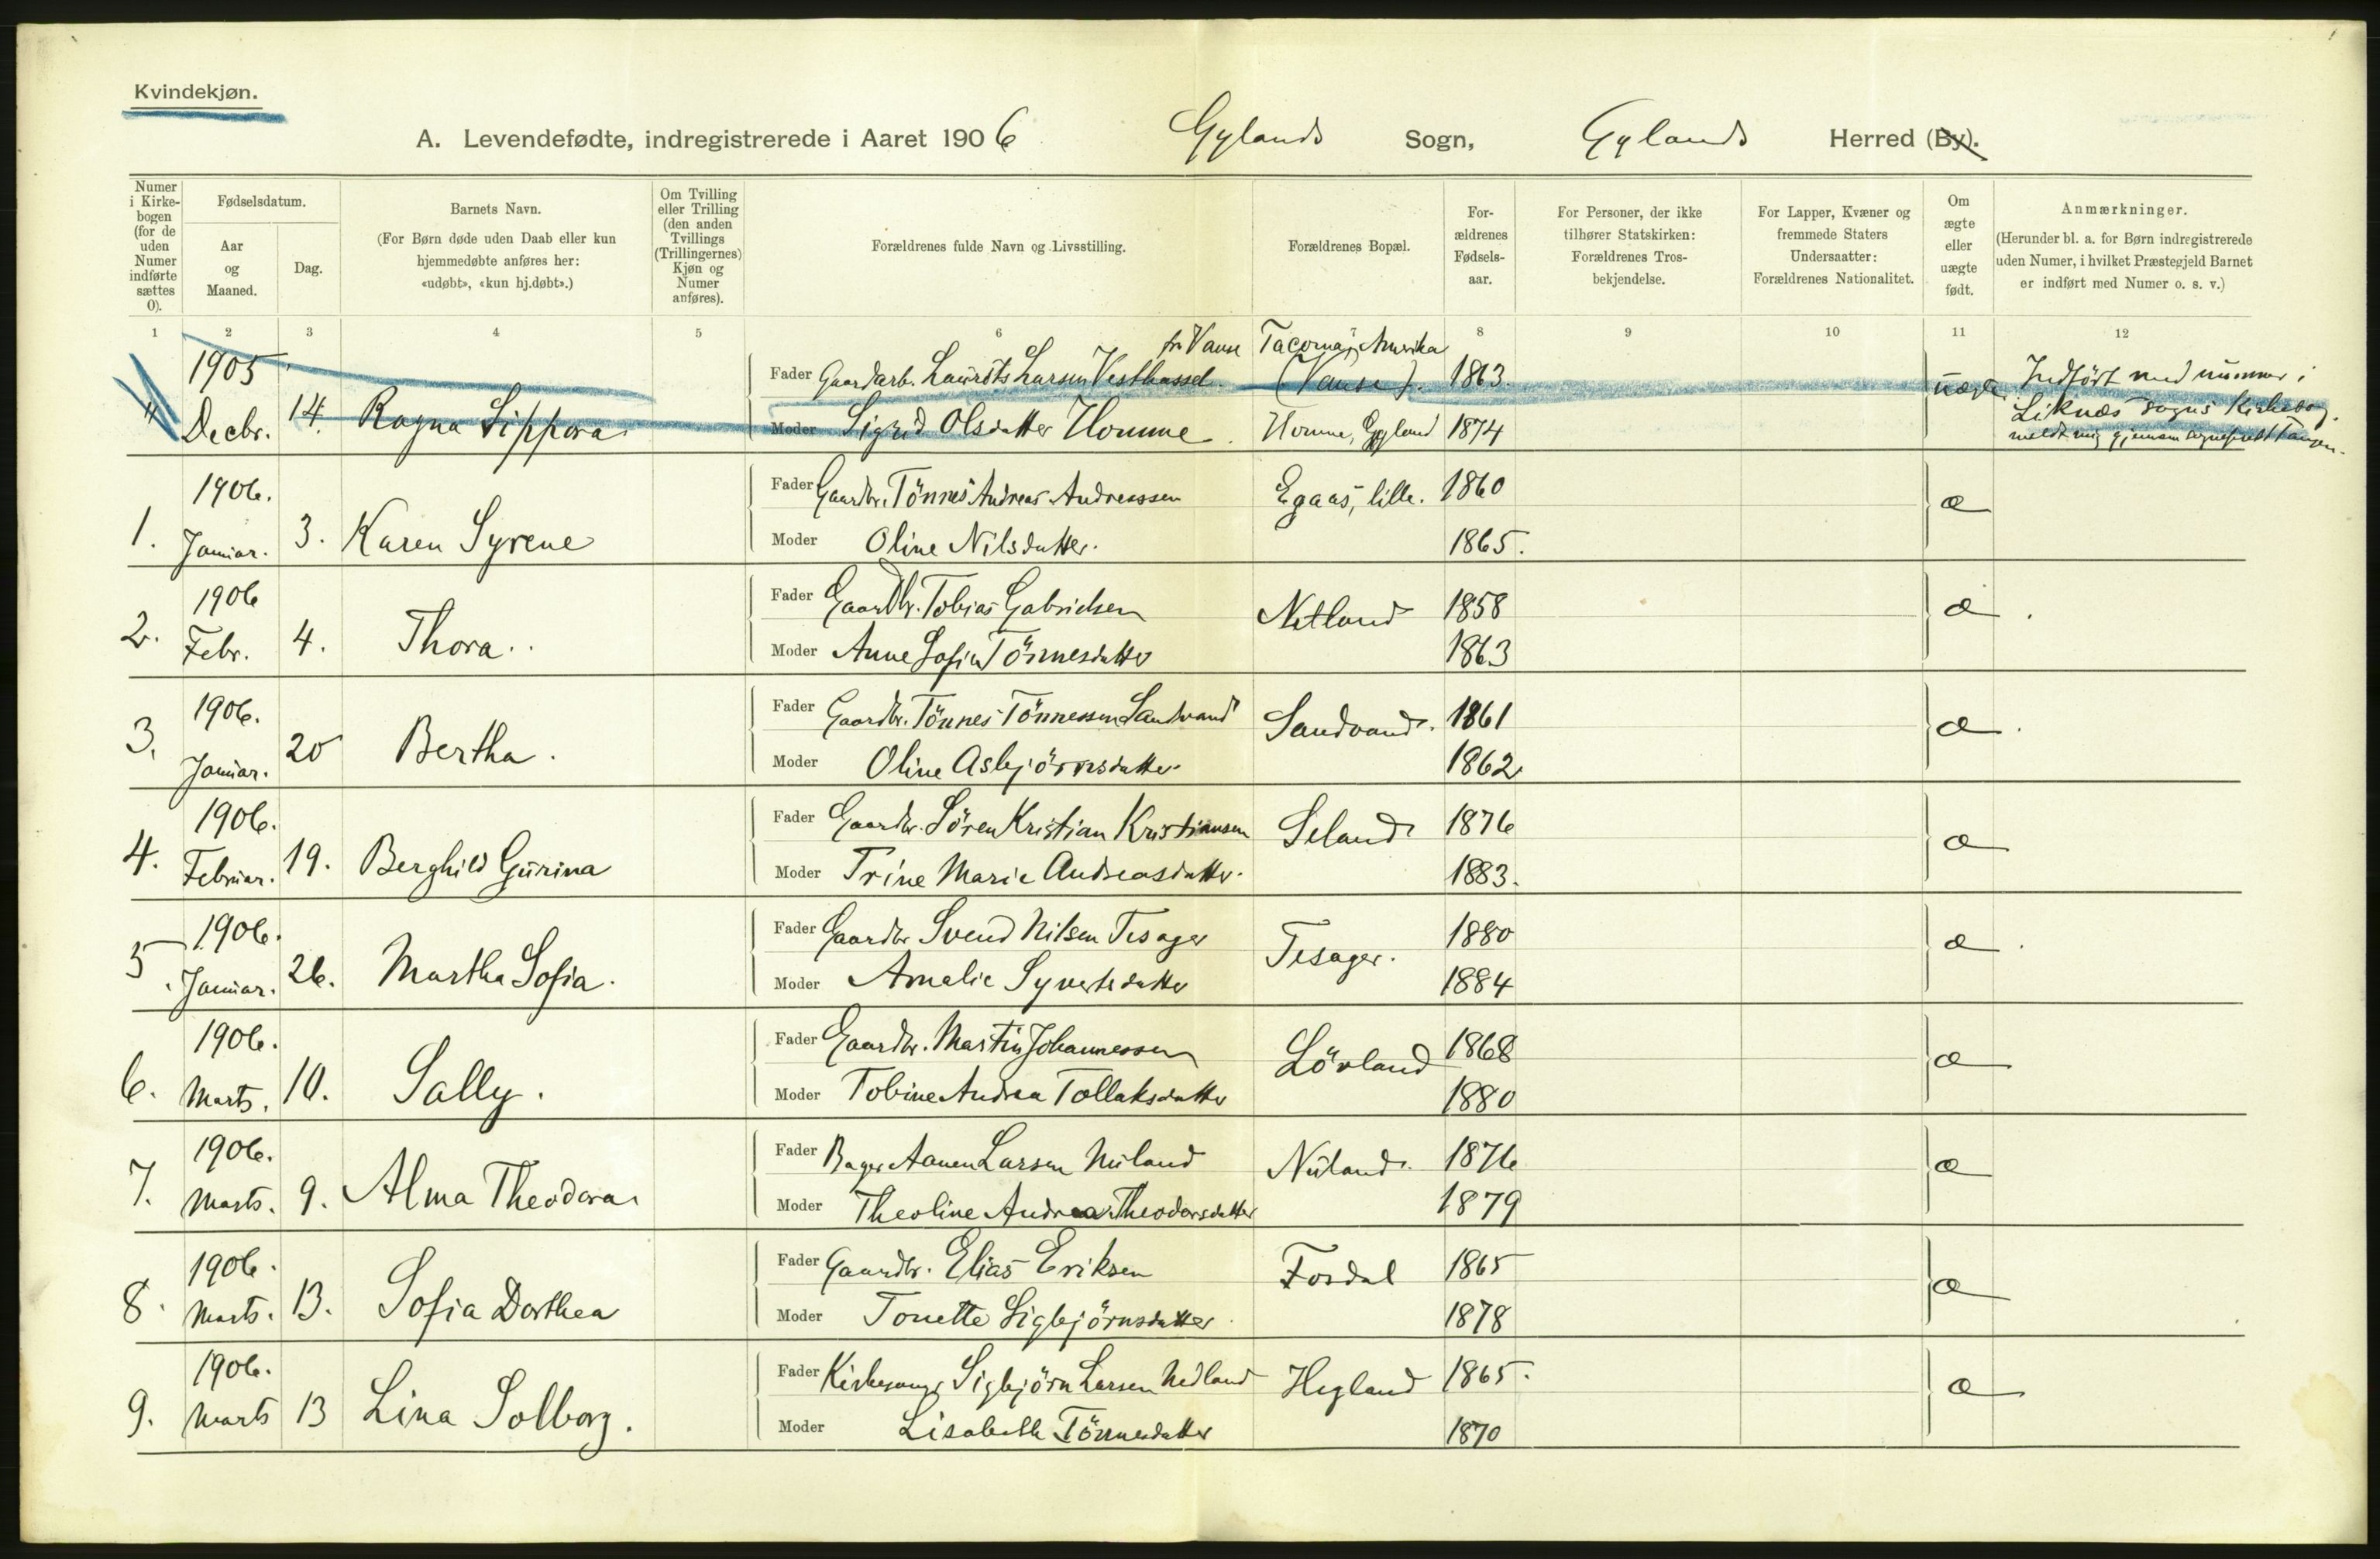 Kvindekjøn.
A. Levendefødte, indregistrerede i Aaret 1906 Gylands Sogn, Gylands Herred (By).
Numer i Kirke-bogen (for de uden Numer indførte sættes 0).
Fødselsdatum.
Aar og Maaned.
Dag.
Barnets Navn.
(For Børn døde uden Daab eller kun hjemmedøbte anføres her: «udøbt», «kun hj.døbt».)
Om Tvilling eller Trilling (den anden Tvillings (Trillingernes) Kjøn og Numer anføres).
Forældrenes fulde Navn og Livsstilling.
Forældrenes Bopæl.
For-ældrenes Fødsels-aar.
For Personer, der ikke tilhører Statskirken: Forældrenes Tros-bekjendelse.
For Lapper, Kvæner og fremmede Staters Undersaatter: Forældrenes Nationalitet.
Om ægte eller uægte født.
Anmærkninger.
(Herunder bl. a. for Børn indregistrerede uden Numer, i hvilket Præstegjeld Barnet er indført med Numer o. s. v.)
1 2 3 4 5 6 7 8 9 10 11 12
fr. Vanse Tacoma, Amerika
1905 Fader Gaardarb. Laurits Larsen Vesthassel (Vanse). 1863. uægte Indført med nummer i
" Decbr. 14. Ragna Sippora Moder Sigrid Olsdatter Homme. Homme, Gyland 1874 Liknes sogns Kirkebog.
meldt mig gjennem sogneprest Tangen.
1906. Fader Gaardbr. Tönnes Andreas Andreassen Egaas, lille. 1860 æ
1. Januar. 3. Karen Syrene Moder Oline Nilsdatter. 1865.
1906 Fader Gaardbr. Tobias Gabrielsen Netland 1858 æ
2. Febr. 4. Thora. Moder Anne Sofie Tönnesdatter 1863
1906. Fader Gaardbr. Tönnes Tönnessen Sandvand Sandvand. 1861 æ
3. Januar. 20 Bertha. Moder Oline Asbjörnsdatter 1862
1906. Fader Gaardbr. Sören Kristian Kristiansen Seland 1876 æ
4. Februar. 19. Berghild Gurina Moder Trine Marie Andreasdatter. 1883.
1906. Fader Gaardbr Svend Nilsen Tesager Tesager. 1880 æ
5. Januar. 26. Martha Sofia. Moder Amalie Syvertsdatter 1884
1906. Fader Gaardbr. Martin Johannessen Lövland 1868 æ
6. Marts. 10. Sally. Moder Tobine Andrea Tollaksdatter 1880
1906. Fader Bager Aanen Larsen Nuland Nuland. 1876 æ
7. Marts. 9. Alma Theodora Moder Theoline Andrea Theodorsdatter 1879
1906. Fader Gaardbr. Elias Eriksen Fosdal 1865 æ
8. Marts. 13. Sofia Dorthea Moder Tonette Sigbjörnsdatter 1878
1906. Fader Kirkesanger Sigbjörn Larsen Nedland Hegland 1865. æ
9. Marts 13 Lina Solborg. Moder Lisabeth Tönnesdatter 1870